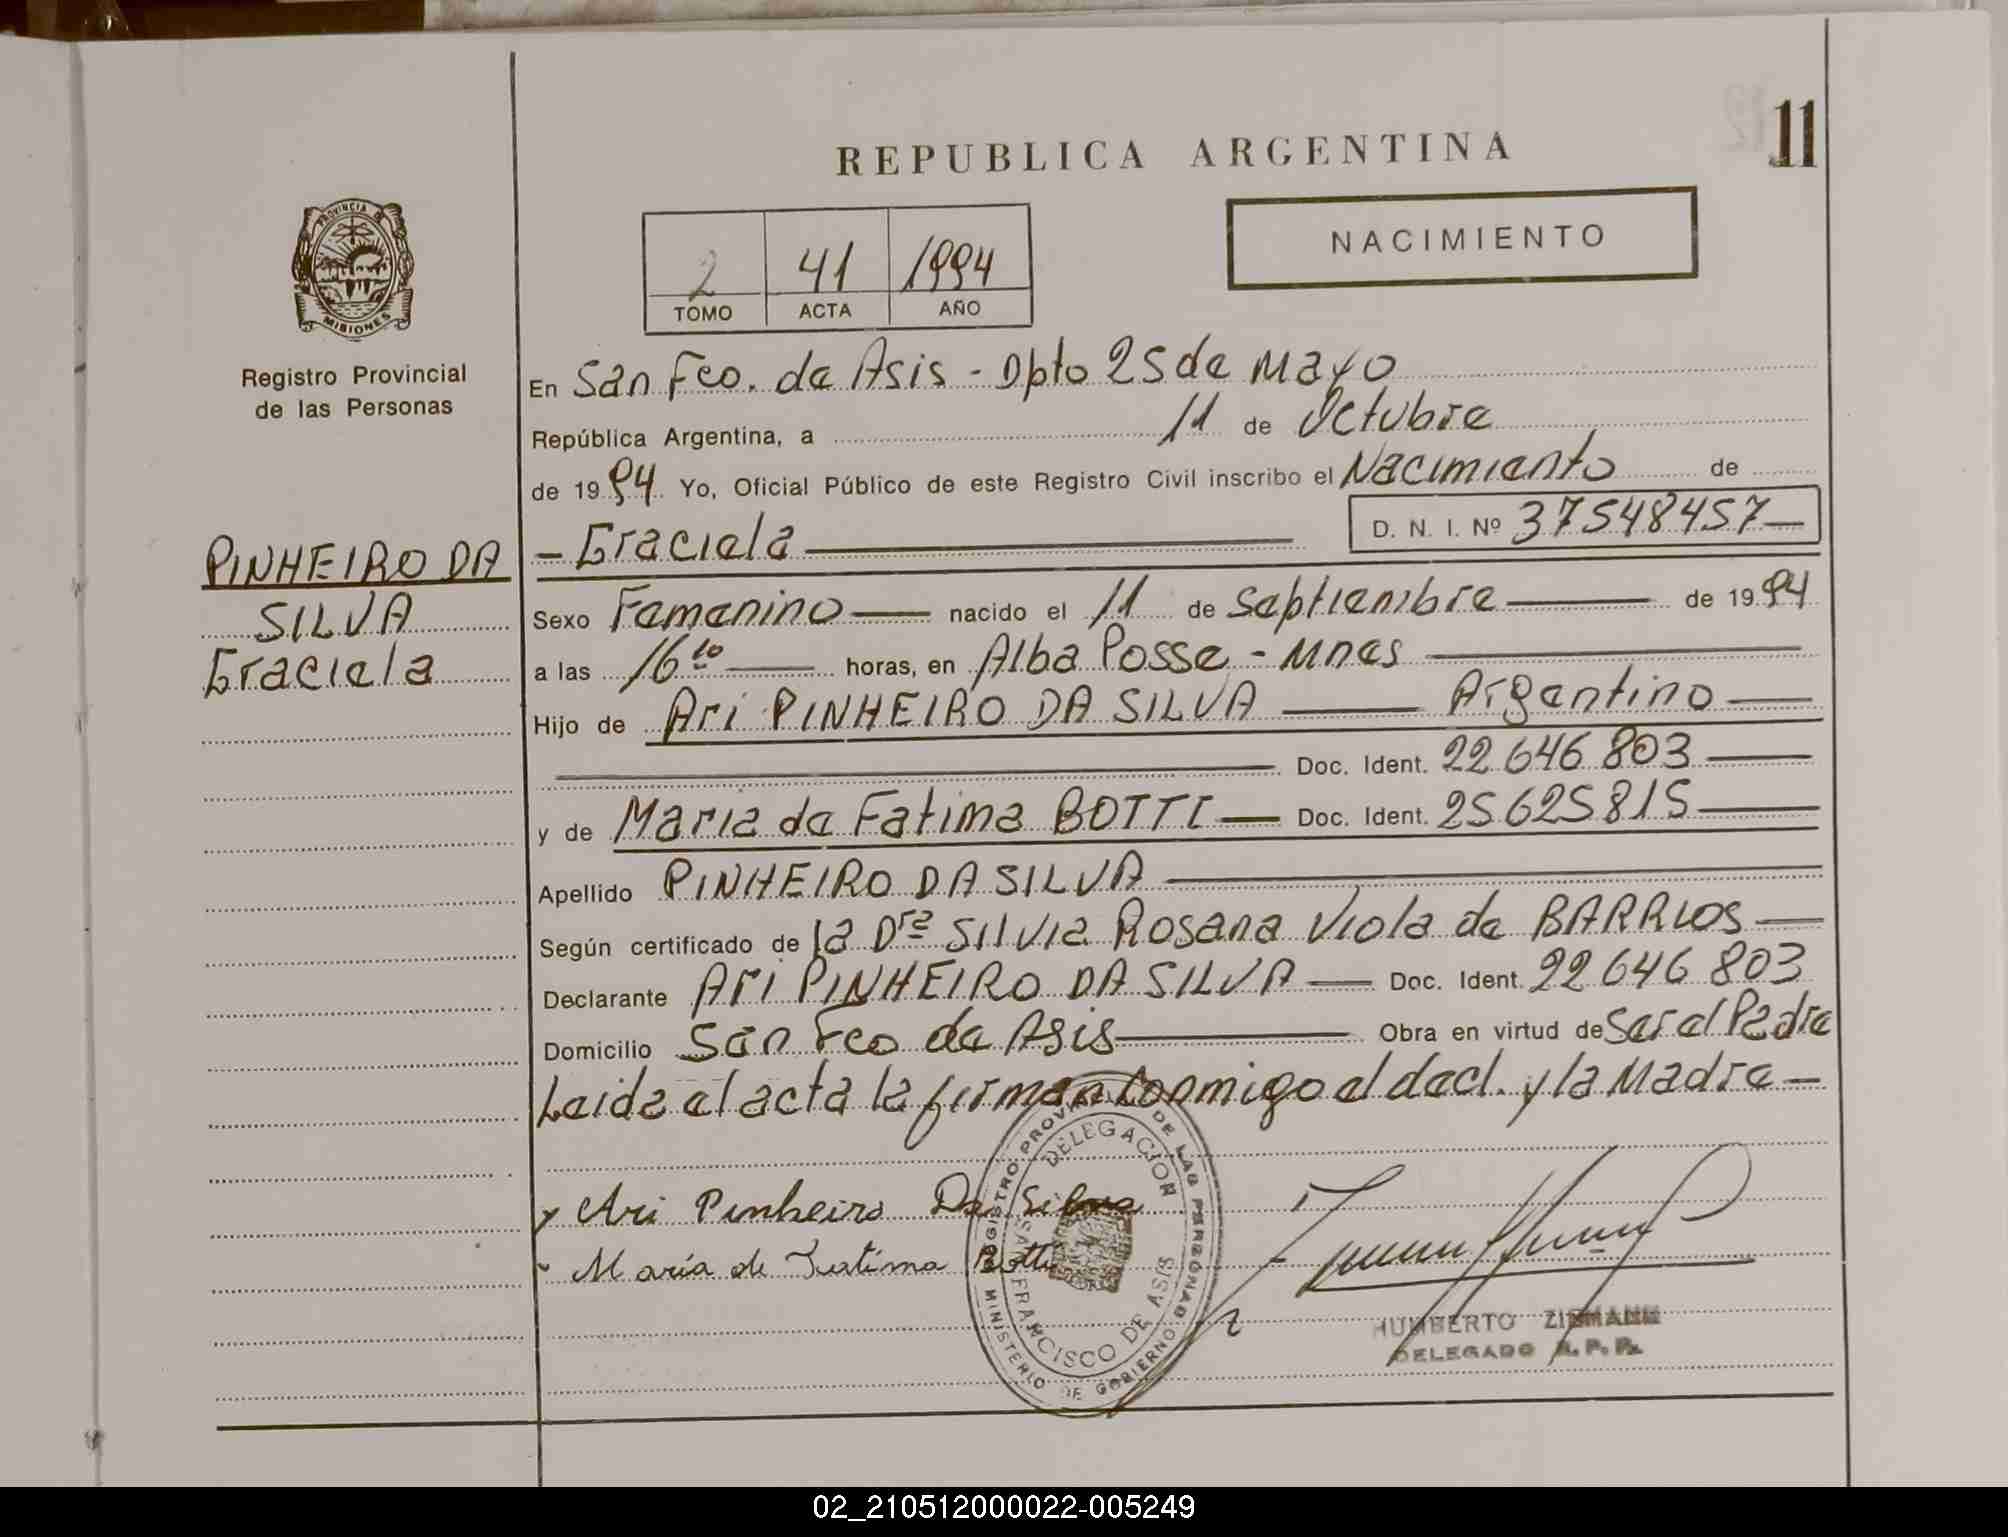 11
REPUBLICA ARGENTINA
NACIMIENTO
2 41 1994
TOMO ACTA AÑO
PROVINCIA DE
MISIONES
Registro Provincial
de las Personas
PINHEIRO DA
SILVA
Graciela
En San Fco. de Asis - Dpto 25 de Mayo
República Argentina, a 11 de Octubre
de 1994 Yo, Oficial Público de este Registro Civil inscribo el Nacimiento de
- Graciela D. N. I. Nº 37548457
Sexo Femenino nacido el 11 de Septiembre de 1994
a las 16 10 horas, en Alba Posse - Mnes
Hijo de Ari PINHEIRO DA SILVA Argentino
Doc. Ident. 22 646 803
y de Maria de Fatima BOTTI Doc. Ident. 25625815
Apellido PINHEIRO DA SILVA
Según certificado de la Dra Silvia Rosana Viola de BARRIOS
Declarante Ari PINHEIRO DA SILVA Doc. Ident. 22 646 803
Domicilio San Fco de Asis Obra en virtud de Ser el Padre
Leida el acta la firman conmigo el decl. y la Madre
Ari Pinheiro Da Silva
María de Fatima Botti
REGISTRO PROVINCIAL DE LAS PERSONAS
DELEGACION
SAN FRANCISCO DE ASIS
MINISTERIO DE GOBIERNO
HUMBERTO ZIEMANN
DELEGADO R. P. P.
02_210512000022-005249